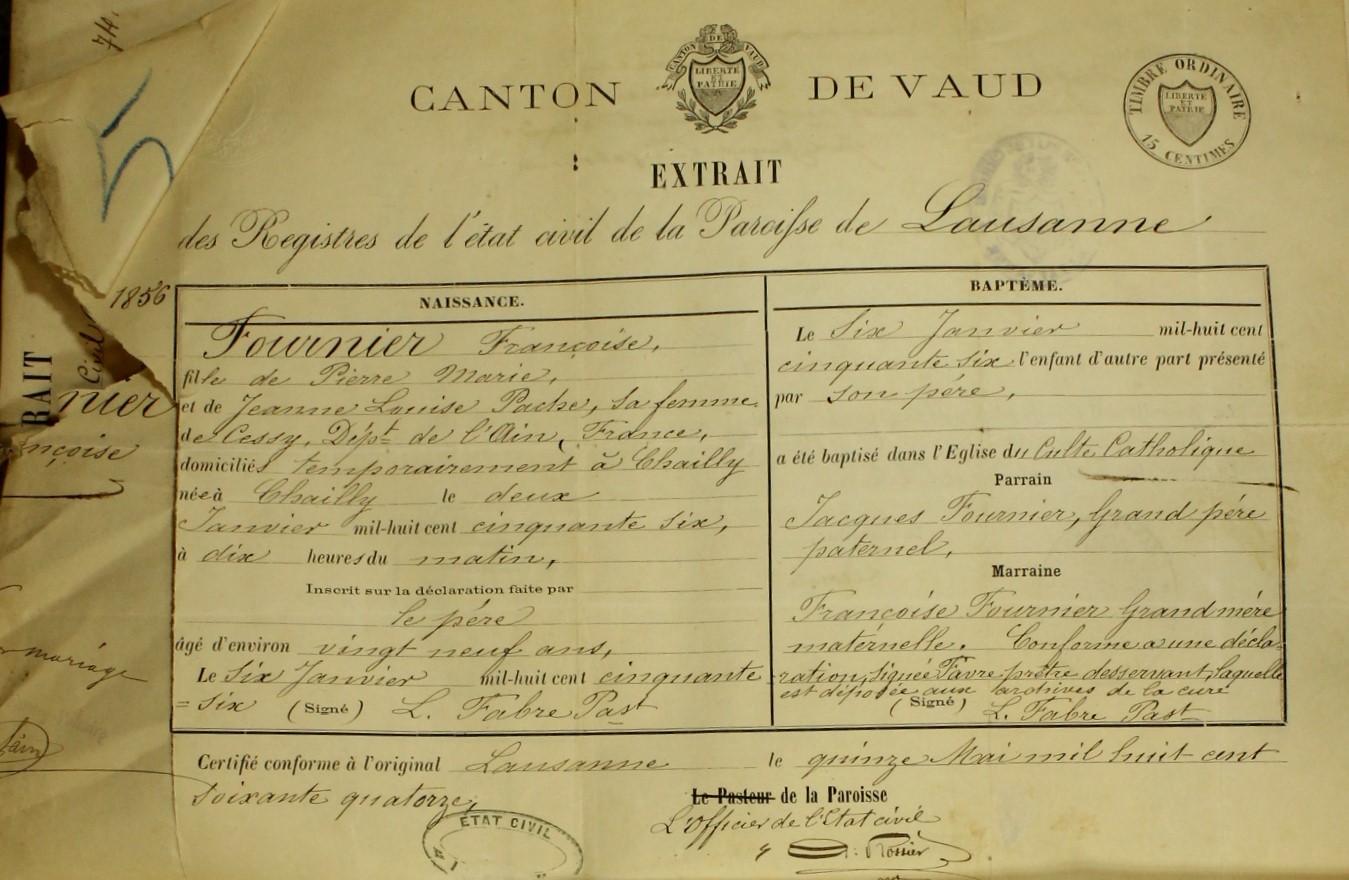 74.
5
CANTON DE VAUD
CANTON DE VAUD
LIBERTÉ
ET
PATRIE
TIMBRE ORDINAIRE
LIBERTÉ
ET
PATRIE
15 CENTIMES
EXTRAIT
des Registres de l'état civil de la Paroisse de Lausanne
1856
RAIT
Civil
nier
nçoise
mariage
NAISSANCE.
Fournier Françoise,
fille de Pierre Marie,
et de Jeanne Louise Pache, sa femme
de Cessy, Dépt de l'Ain, France,
domiciliés temporairement à Chailly
née à Chailly le deux
Janvier mil-huit cent cinquante six,
à dix heures du matin,
Inscrit sur la déclaration faite par
le père
âgé d'environ vingt neuf ans,
Le Six Janvier mil-huit cent cinquante
= six (Signé) L. Fabre Past
BAPTÈME.
Le Six Janvier mil-huit cent
cinquante six l'enfant d'autre part présenté
par son père,
a été baptisé dans l'Eglise du Culte Catholique
Parrain
Jacques Fournier, Grand père
paternel,
Marraine
Françoise Fournier Grand mère
maternelle. Conforme a une décla-
ration, signée Favre prêtre desservant, laquelle
est déposée aux archives de la cure
(Signé) L. Fabre Past
Certifié conforme à l'original Lausanne le quinze Mai mil huit cent
soixante quatorze,
Le Pasteur de la Paroisse
L'Officier de l'Etat civil
Rossier
ÉTAT CIVIL